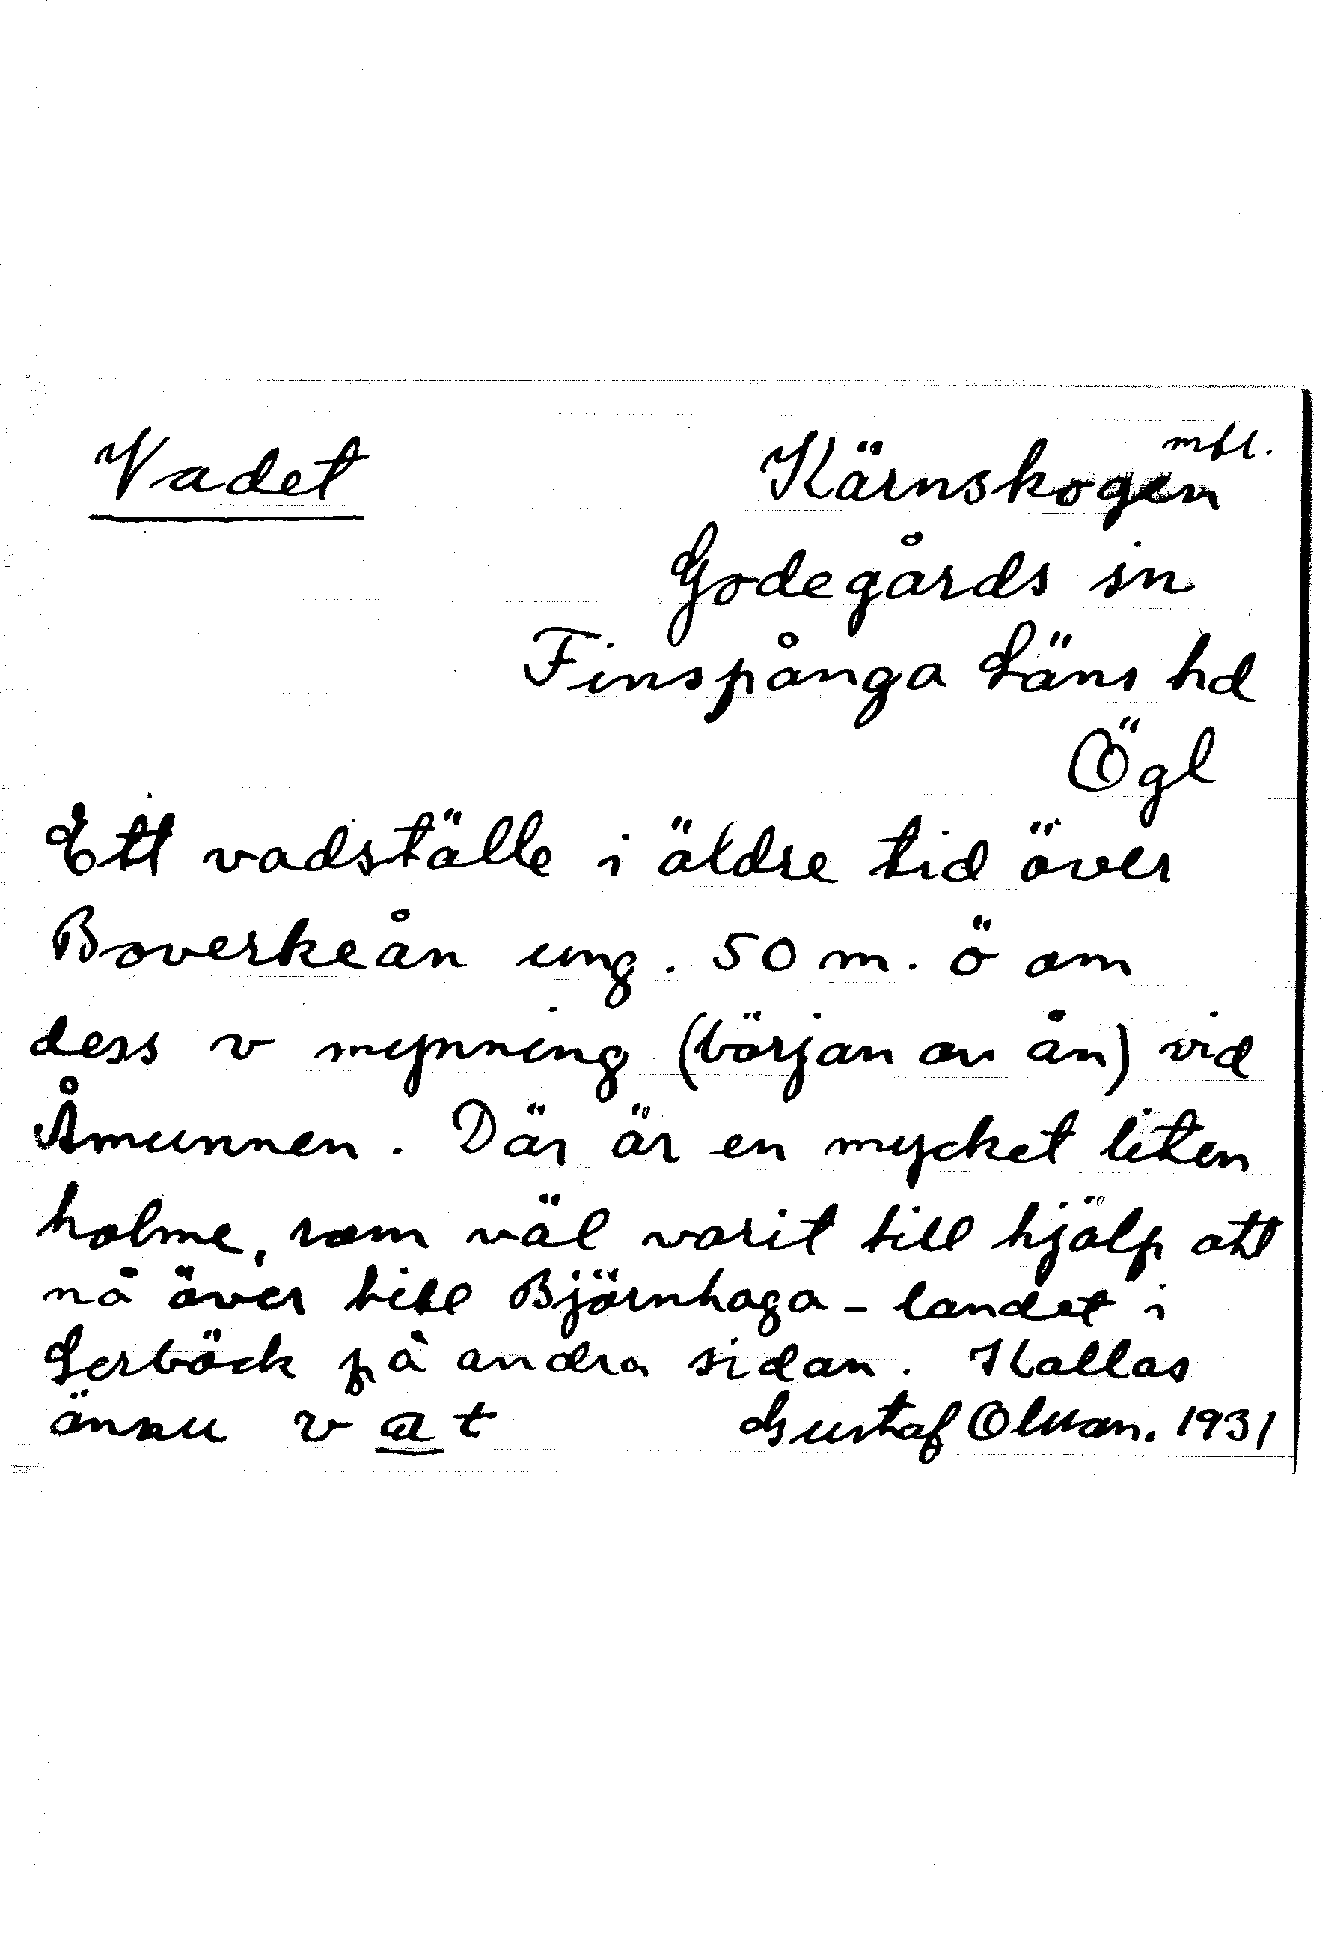 Vadet
Kärnskogen mfl.
Godegårds sn
Finspånga Läns hd
Ögl
Ett vadställe i äldre tid över
Boverkeån ung. 50 m. ö om
dess v mynning (början av ån) vid
Åmunnen. Där är en mycket liten
holme, som väl varit till hjälp att
nå över till Björnhaga-landet i
Lerbäck på andra sidan. Kallas
ännu v a t
Gustaf Olsson. 1931